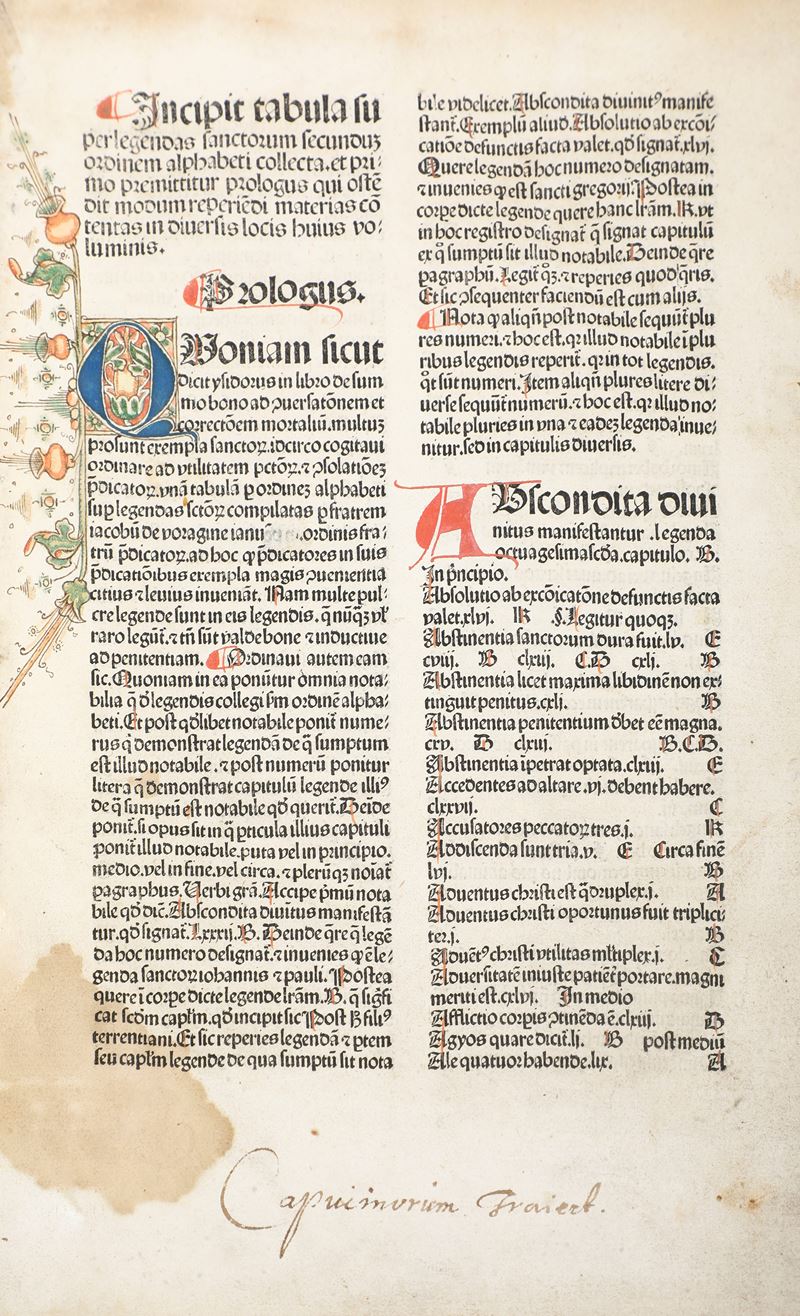 Incipit tabula su
per legendas sanctorum secunduȝ
ordinem alphabeti collecta.et pri⸗
mo premittitur prologus qui ostē
dit modum reperiēdi materias cō
tentas in diuersis locis huius vo⸗
luminis.
Prologus.
QUoniam sicut
dicit ysidorus in libro de sum
mo bono ad ꝯuersatōnem et
correctōem mortaliū.multuȝ
prosunt exempla sanctoꝝ.idcirco cogitaui
ordinare ad vtilitatem pctōꝝ.⁊ ꝯsolatiōeȝ
p̄dicatoꝝ.vnā tabulā ꝑ ordineȝ alphabeti
suꝑ legendas sctōꝝ compilatas ꝑ fratrem
iacobū de voragine ianu ordinis fra⸗
trū p̄dicatoꝝ.ad hoc ꝙ p̄dicatores in suis
p̄dicatiōibus exempla magis ꝯuenientia
citius ⁊ leuius inueniāt. Nam multe pul⸗
cre legende sunt in eis legendis.q̄ nūq̄ȝ vł
raro legūt̄.⁊ tn̄ sūt valde bone ⁊ inductiue
ad penitentiam. Ordinaui autem eam
sic. Quoniam in ea ponūtur omnia nota⸗
bilia q̄ d̄ legendis collegi ſm ordinē alpha⸗
beti. Et post qd̄libet notabile ponit̄ nume⸗
rus q̇ demonstrat legendā de q̄ sumptum
est illud notabile.⁊ post numerū ponitur
litera q̄ demonstrat capitulū legende illiꝰ
de q̄ sumptū est notabile qd̄ querit̄. Deīde
ponit̄.si opus sit in q̄ ꝑticula illius capituli
ponit̄ illud notabile.puta vel in principio.
medio.vel in fine.vel circa.⁊ plerūqȝ noīat̄
pagraphus. Uerbi gr̄a. Accipe pm̄ū nota
bile qd̄ dic̄. Abscondita diuīitus manifestā
tur.qd̄ signat̄. Lxxxij.B. Deinde q̄re q̄ legē
da hoc numero designat̄.⁊ inuenies ꝙ ē le⸗
genda sanctoꝝ iohannis ⁊ pauli. Postea
quere ī corpe dicte legende lr̄am.B. q̄ sigf̄i
cat scd̄m capłm.qd̄ incipit sic Post ꝫ filiꝰ
terrentiani. Et sic reperies legendā ⁊ ꝑtem
seu capłm legende de qua sumptū sit nota
bile videlicet. Abscondita diuinitꝰ manife
stant̄. Exemplū aliud. Absolutio ab excōi⸗
catiōe defunctis facta valet.qd̄ signat̄.xlvj.
Quere legendā hoc numero designatam.
⁊ inuenies ꝙ est sancti gregorij. Postea in
corpe dicte legende quere hanc lr̄am. K. vt
in hoc registro designat̄ q̄ signat capitulū
ex q̄ sumptū sit illud notabile. Deinde q̄re
pagraphū. Legit̄ qȝ.⁊ reperies quod q̇ris.
Et sic ꝯsequenter faciendū est cum alijs.
Nota ꝙ aliqn̄ post notabile sequūt̄ plu
res numeri.⁊ hoc est.qꝛ illud notabile ī plu
ribus legendis reperit̄.qꝛ in tot legendis.
qͦt sūt numeri. Item aliqn̄ plures litere di⸗
uerse sequūt̄ numerū.⁊ hoc est.qꝛ illud no⸗
tabile pluries in vna ⁊ eadeȝ legenda inue⸗
nitur.sed in capitulis diuersis.
ABscondita diui
nitus manifestantur .legenda
octuagesima scd̄a.capitulo. B.
In pͥncipio.
Absolutio ab excōicatōne defunctis facta
valet.xlvj. K .§. Legitur quoqȝ.
Abstinentia sanctorum dura fuit.lv. E
cviij. B clxiij. C.D cxlj. B
Abstinentia licet maxima libidinē non ex⸗
tinguit penitus.cxlj. B
Abstinentia penitentium dȝbet eē magna.
crv. D clxiij. B.C.D.
Abstinentia īpetrat optata.clxiij. E
Accedentes ad altare.vj.debent habere.
clxxvij. C
Accusatores peccatoꝝ tres.j. K
Addiscenda sunt tria.v. E Circa finē
lvj. B
Aduentus christi est q̄druplex.j. A
Aduentus christi oportunus fuit triplici⸗
ter.j. B
Aduētꝰ christi vtilitas młtiplex.j. C
Aduersitatē iniuste patiēt̄ portare.magni
meriti est.cxlvj. In medio
Afflictio corpis ꝯtinēda ē.clxiij. D
Agyos quare dicit̄.lj. B post mediū
Ale quatuor habende.lix. A
Capucinorum Traiect.